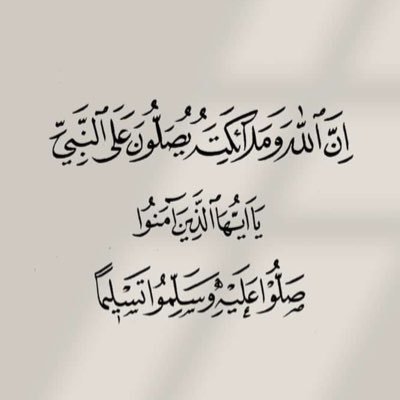 اِنَّ ٱللّٰهَ وَمَلَآئِكَتَهُ يُصَلُّونَ عَلَى ٱلنَّبِيِّ
يَا اَيُّهَا ٱلَّذِينَ آمَنُوا
صَلُّوْا عَلَيْهِ وَسَلِّمُوا تَسْلِيمًا